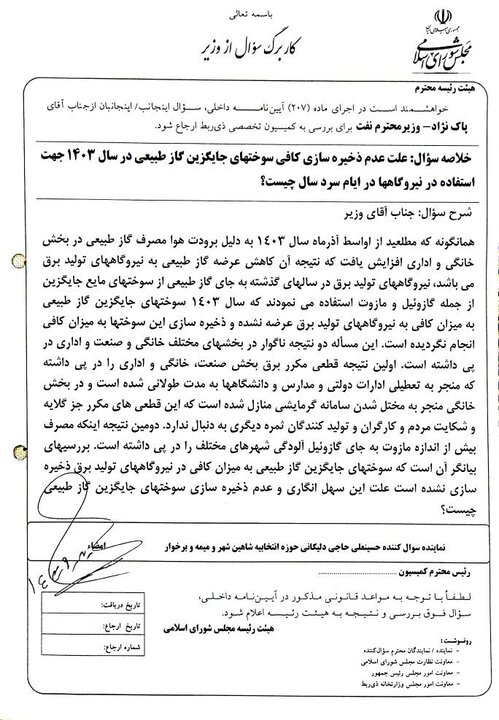 باسمه تعالی
جمهوری اسلامی ایران
مجلس شورای اسلامی
کاربرگ سؤال از وزیر
هیئت رئیسه محترم
خواهشمند است در اجرای ماده (۲۰۷) آیین‌نامه داخلی، سؤال اینجانب/ اینجانبان ازجناب آقای
پاک نژاد– وزیرمحترم نفت برای بررسی به کمیسیون تخصصی ذی‌ربط ارجاع شود.
خلاصه سؤال: علت عدم ذخیره سازی کافی سوختهای جایگزین گاز طبیعی در سال ۱۴۰۳ جهت
استفاده در نیروگاهها در ایام سرد سال چیست؟
شرح سؤال: جناب آقای وزیر
همانگونه که مطلعید از اواسط آذرماه سال ۱۴۰۳ به دلیل برودت هوا مصرف گاز طبیعی در بخش
خانگی و اداری افزایش یافت که نتیجه آن کاهش عرضه گاز طبیعی به نیروگاههای تولید برق
می باشد، نیروگاههای تولید برق در سالهای گذشته به جای گاز طبیعی از سوختهای مایع جایگزین
از جمله گازوئیل و مازوت استفاده می نمودند که سال ۱۴۰۳ سوختهای جایگزین گاز طبیعی
به میزان کافی به نیروگاههای تولید برق عرضه نشده و ذخیره سازی این سوختها به میزان کافی
انجام نگردیده است. این مسأله دو نتیجه ناگوار در بخشهای مختلف خانگی و صنعت و اداری در
پی داشته است. اولین نتیجه قطعی مکرر برق بخش صنعت، خانگی و اداری را در پی داشته که
منجر به تعطیلی ادارات دولتی و مدارس و دانشگاهها به مدت طولانی شده است و در بخش
خانگی منجر به مختل شدن سامانه گرمایشی منازل شده است که این قطعی های مکرر جز گلایه
و شکایت مردم و کارگران و تولید کنندگان ثمره دیگری به دنبال ندارد. دومین نتیجه اینکه مصرف
بیش از اندازه مازوت به جای گازوئیل آلودگی شهرهای مختلف را در پی داشته است. بررسیهای
بیانگر آن است که سوختهای جایگزین گاز طبیعی به میزان کافی در نیروگاههای تولید برق ذخیره
سازی نشده است علت این سهل انگاری و عدم ذخیره سازی سوختهای جایگزین گاز طبیعی
چیست؟
نماینده سوال کننده حسینعلی حاجی دلیگانی حوزه انتخابیه شاهین شهر و میمه و برخوار
امضاء
رئیس محترم کمیسیون
لطفاً با توجه به مواعد قانونی مذکور در آیین‌نامه داخلی،
سؤال فوق بررسی و نتیجه به هیئت رئیسه اعلام شود.
هیئت رئیسه مجلس شورای اسلامی
تاریخ دریافت:
تاریخ ارجاع:
شماره ارجاع:
رونوشت:
– نماینده / نمایندگان محترم سؤال‌کننده
– معاونت نظارت مجلس شورای اسلامی
– معاونت امور مجلس رئیس جمهور
– معاونت امور مجلس وزارتخانه ذی‌ربط